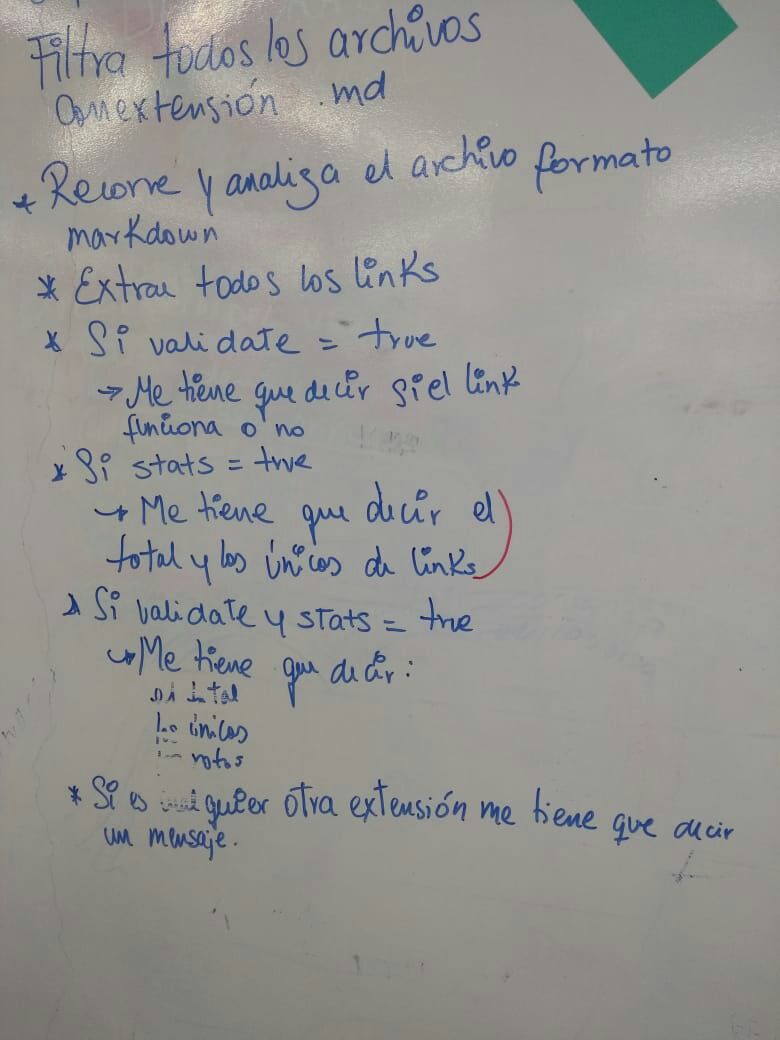 Filtra todos los archivos
con extensión .md
* Recorre y analiza el archivo formato
markdown
* Extrae todos los links
* Si validate = true
→ Me tiene que decir si el link
funciona o no
* Si stats = true
→ Me tiene que decir el
total y los únicos de links
* Si validate y stats = true
→ Me tiene que decir:
total
los únicos
rotos
* Si es cualquier otra extensión me tiene que decir
un mensaje.